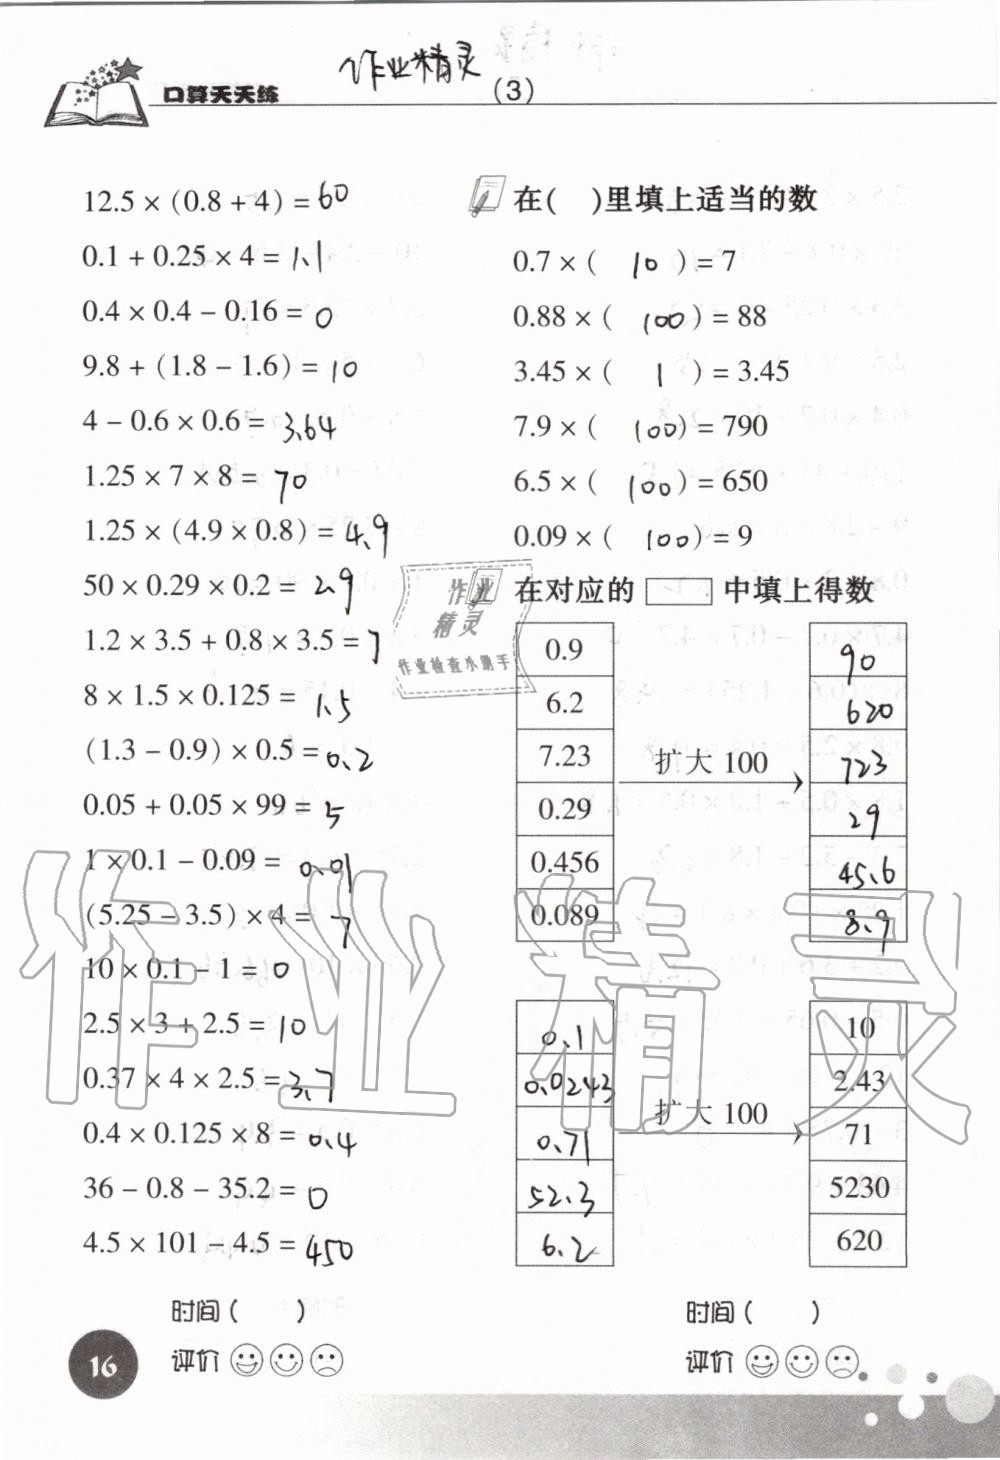 作业精灵
口算天天练
(3)
12.5 × (0.8 + 4) = 60
0.1 + 0.25 × 4 = 1.1
0.4 × 0.4 − 0.16 = 0
9.8 + (1.8 − 1.6) = 10
4 − 0.6 × 0.6 = 3.64
1.25 × 7 × 8 = 70
1.25 × (4.9 × 0.8) = 4.9
50 × 0.29 × 0.2 = 2.9
1.2 × 3.5 + 0.8 × 3.5 = 7
8 × 1.5 × 0.125 = 1.5
(1.3 − 0.9) × 0.5 = 0.2
0.05 + 0.05 × 99 = 5
1 × 0.1 − 0.09 = 0.01
(5.25 − 3.5) × 4 = 7
10 × 0.1 − 1 = 0
2.5 × 3 + 2.5 = 10
0.37 × 4 × 2.5 = 3.7
0.4 × 0.125 × 8 = 0.4
36 − 0.8 − 35.2 = 0
4.5 × 101 − 4.5 = 450
时间 ( )
评价
16
在( )里填上适当的数
0.7 × ( 10 ) = 7
0.88 × ( 100 ) = 88
3.45 × ( 1 ) = 3.45
7.9 × ( 100 ) = 790
6.5 × ( 100 ) = 650
0.09 × ( 100 ) = 9
作业
精灵
作业检查小助手
在对应的 中填上得数
0.9 90
6.2 620
7.23 扩大 100 723
0.29 29
0.456 45.6
0.089 8.9
作业精灵
0.1 10
0.0243 2.43
0.71 扩大 100 71
52.3 5230
6.2 620
时间 ( )
评价